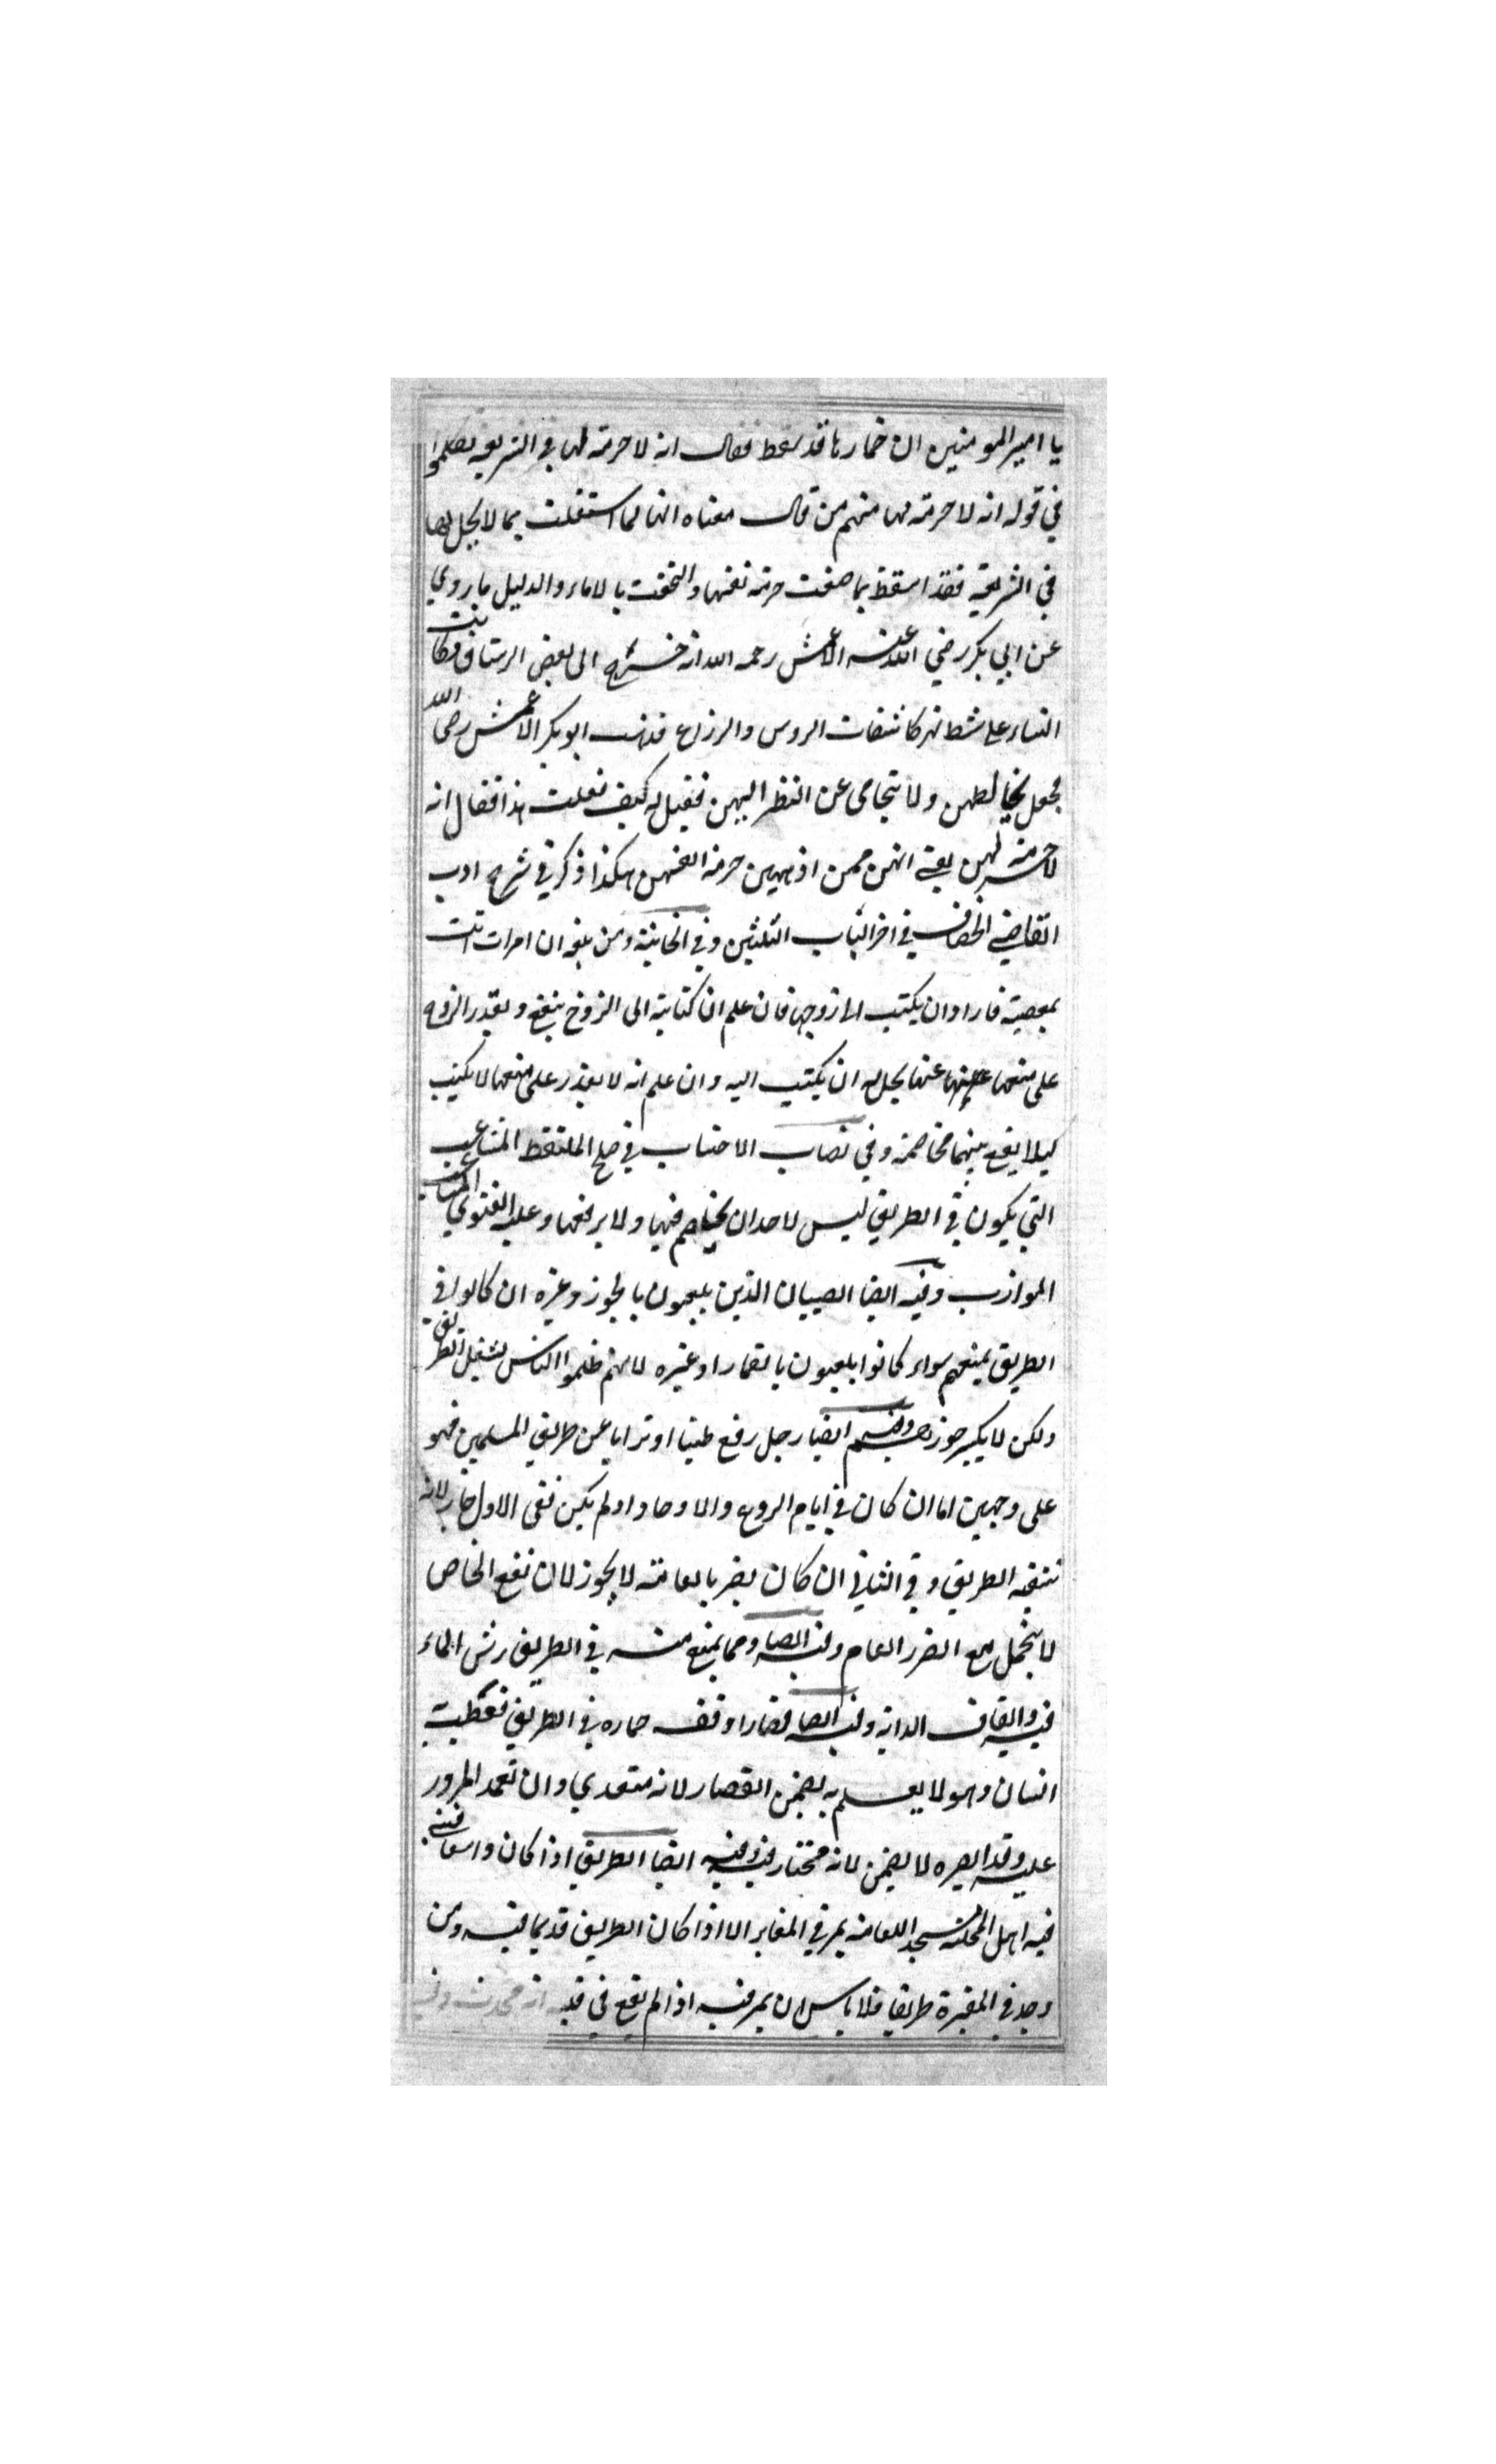 يا امير المومنين ان خمارها قد سقط فقال انه لا حرمة لها في الشريعة تكلموا
في قوله انه لا حرمة لها منهم من قال معناه انها لما اشتغلت بما لا يحل لها
في الشريعة فقد اسقط بما صنعت حرمة نفسها والتحقت بالاماء والدليل ما روي
عن ابي بكر رضي الله عنه الاعمش رحمه الله انه خرج الى بعض الرستاق وكانت
النساء على شط نهر كاشفات الروس والذراع فذهب ابو بكر الاعمش رضى الله
فجعل يخالطهن ولا يتحامى عن النظر اليهن فقيل له كيف فعلت هذا فقال انه
لا حرمة لهن يعني انهن ممن اذهبن حرمة انفسهن هكذا ذكر في شرح ادب
القاضي الخصاف في اخر الباب الثلثين وفي الخانية ومن بلغه ان امرات اتت
بمعصية فاراد ان يكتب الا زوجها فان علم ان كتابة الى الزوج ينفع ويقدر الزوج
على منعها عنها يحل له ان يكتب اليه وان علم انه لا يقدر على منعها لا يكتب
كيلا يقع بينهما مخاصمة وفي نصاب الاحتساب في صلح الملتقط المثاعب
التي يكون في الطريق ليس لاحد ان يخاصم فيها ولا يرفعها وعليه الفتوى المثاعب
الموازب وفيه ايضا الصبيان الذين يلعبون بالجوز وغيره ان كانوا في
الطريق يمنعهم سواء كانوا يلعبون بالقمار او غيره لانهم ظلموا الناس بشغل الطريق
ولكن لا يكسر جوزهم وفيه ايضا رجل رفع طينا او ترابا عن طريق المسلمين فهو
على وجهين اما ان كان في ايام الروع والاوحاد او لم يكن ففى الاول جاز لانه
تنقية الطريق وفي الثاني ان كان يضر بالعامة لا يجوز لان نفع الخاص
لا يتحمل مع الضرر العام وفيه ايضا ومما يمنع منه في الطريق رش الماء
فيه وايقاف الدابة وفيه ايضا قصار اوقف حماره في الطريق فعطبت
انسان وهو لا يعلم به يضمن القصار لانه متعدي وان تعمد المرور
عليه وقد ابصره لا يضمن لانه مختار فيه وفيه ايضا الطريق اذا كان واسعا فبنى
فيه اهل المحلة مسجدا للعامة يمر في المقابر الا اذا كان الطريق قديما فيه ومن
وجد في المقبرة طريقا فلا باس ان يمر فيه اذا لم يقع في قلبه انه محدث وفيه